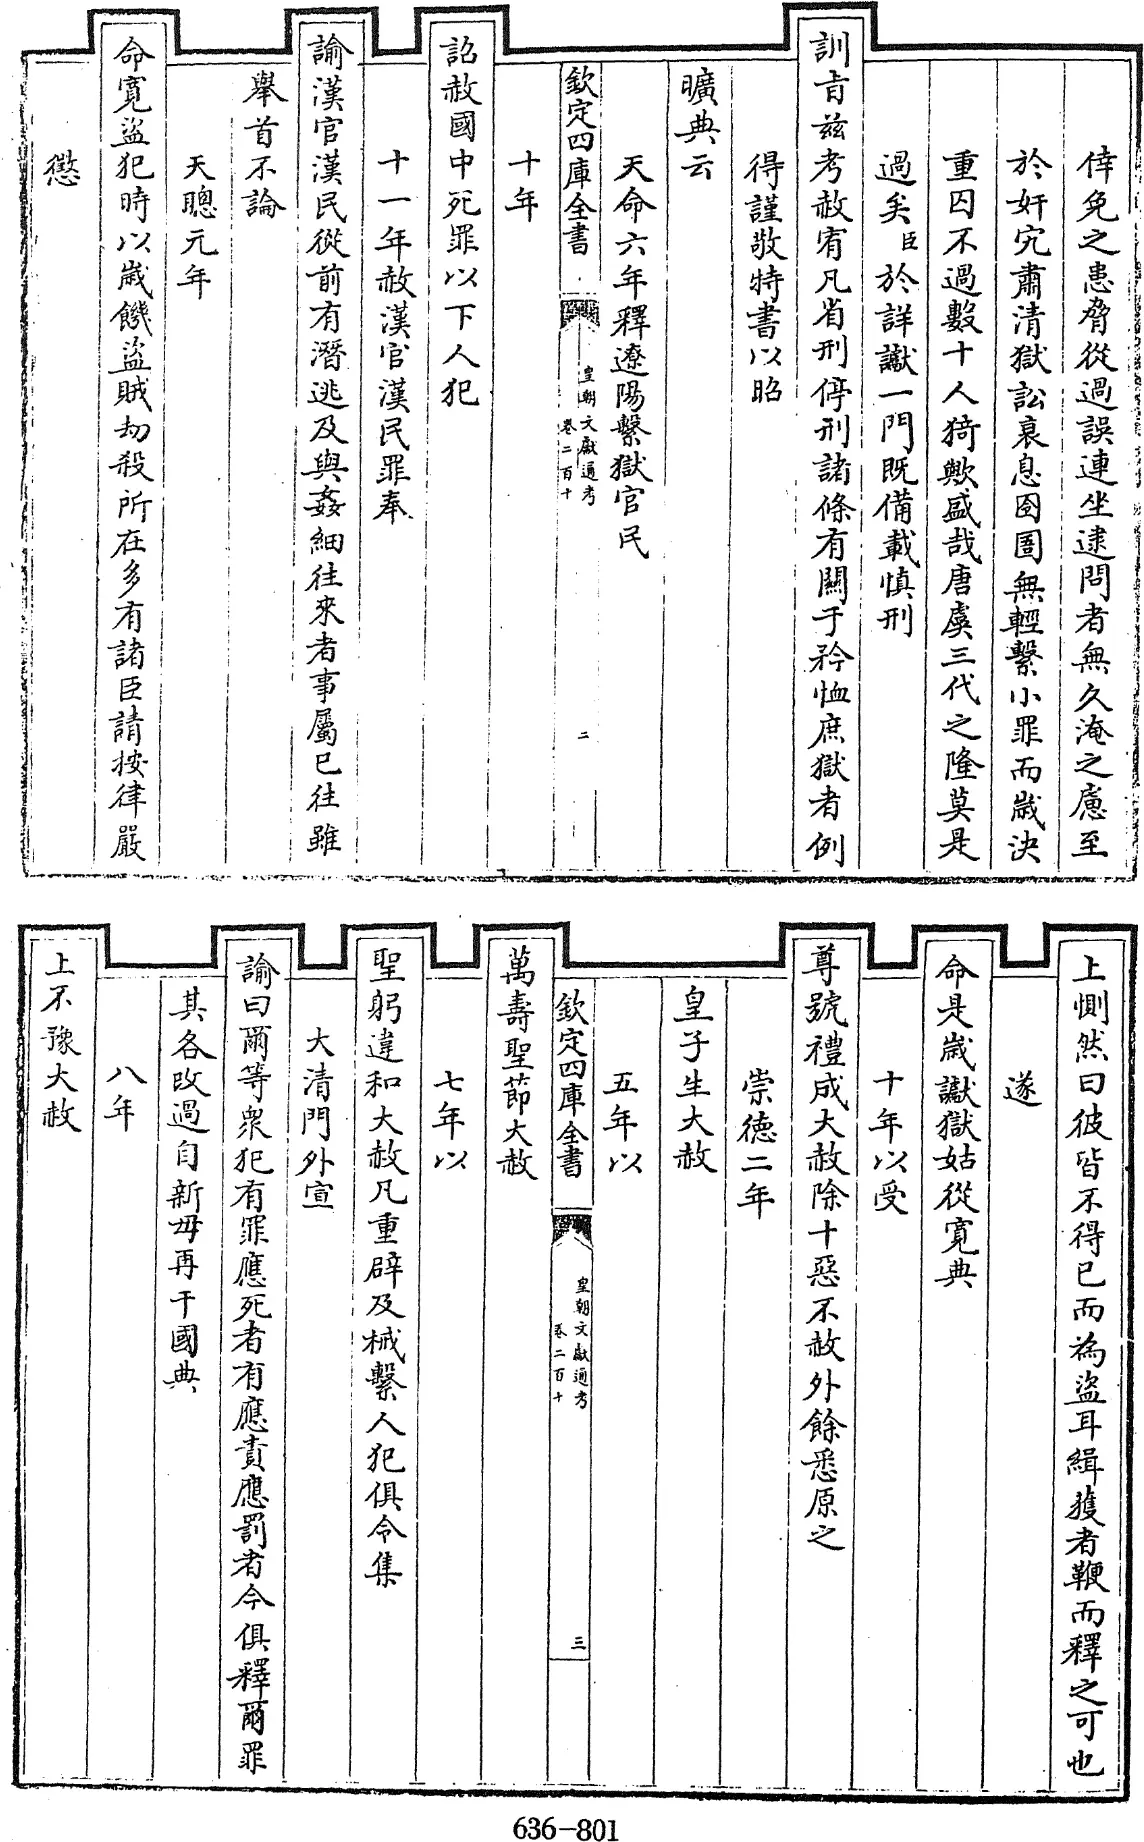 倖免之患脅從過誤連坐逮問者無久淹之慮至
於奸宄肅清獄訟衰息囹圄無輕繫小罪而歲決
重囚不過數十人猗歟盛哉唐虞三代之隆莫是
過矣臣於詳讞一門既備載慎刑
訓言兹考赦宥凡省刑停刑諸條有關于矜恤庶獄者例
得謹敬特書以昭
曠典云
天命六年釋遼陽繫獄官民
欽定四庫全書
皇朝文獻通考
卷二百十
二
十年
詔赦國中死罪以下人犯
十一年赦漢官漢民罪奉
諭漢官漢民從前有潛逃及與姦細往來者事屬已往雖
舉首不論
天聰元年
命寬盜犯時以歲饑盜賊劫殺所在多有諸臣請按律嚴
懲
上惻然曰彼皆不得已而為盜耳緝獲者鞭而釋之可也
遂
命是歲讞獄姑從寬典
十年以受
尊號禮成大赦除十惡不赦外餘悉原之
崇德二年
皇子生大赦
五年以
欽定四庫全書
皇朝文獻通考
卷二百十
三
萬壽聖節大赦
七年以
聖躬違和大赦凡重辟及械繫人犯俱令集
大清門外宣
諭曰爾等衆犯有罪應死者有應責應罰者今俱釋爾罪
其各改過自新毋再干國典
八年
上不豫大赦
636-801